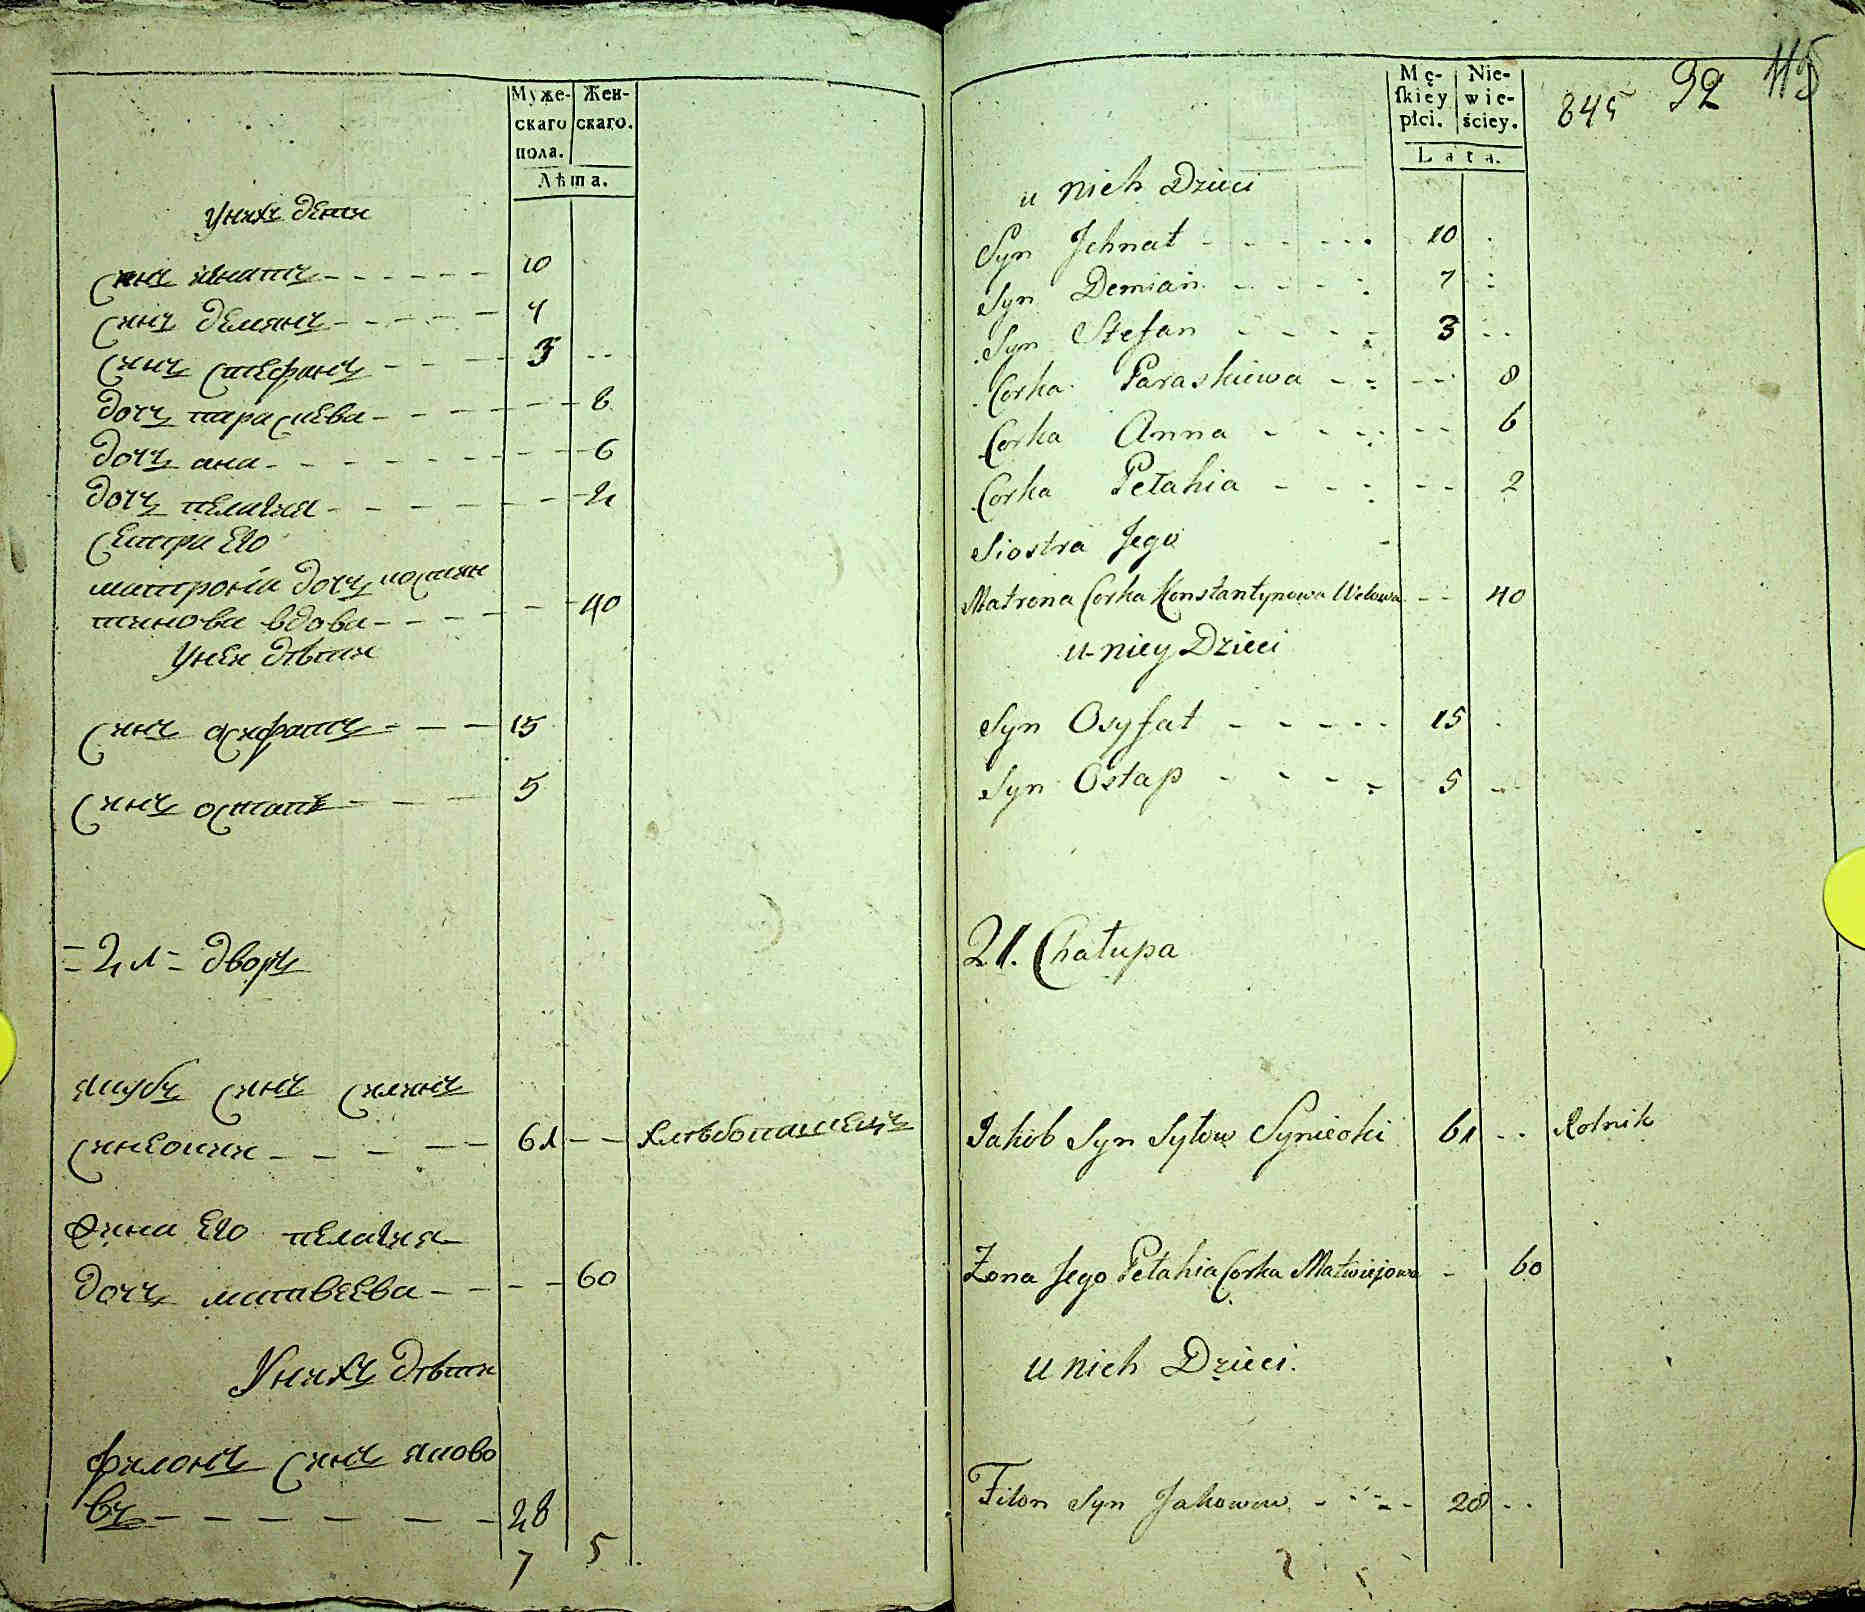 Муже-
скаго
пола.
Жен-
скаго.
Лѣта.
Унихъ дети
синъ игнатъ 10
синъ демянъ 7
синъ стефанъ 3
дочъ параскева 8
дочъ ана 6
дочъ пелагия 2
сестра его
матрона дочъ костян
тинова вдова 40
Уней дѣти
синъ осифатъ 15
синъ остапъ 5
=21= дворъ
якубъ синъ силинъ
61 хлѣбопашецъ
жина его пелагия
дочъ матвеева 60
Унихъ дѣти
филонъ синъ яково
въ 28
7 5
Mę-
ſkiey
płci.
Nie-
wie-
ściey.
Lata.
845 92 115
u nich Dzieci
Syn Ichnat 10
Syn Demian 7
Syn Stefan 3
Corka Paraskiewa 8
Corka Anna 6
Corka Pełahia 2
Siostra Jego
Matrona Corka Konstantynowa Wdowa 40
u niey Dzieci
Syn Osyfat 15
Syn Ostap 5
21. Chałupa
Jakob Syn Syłow 61 Rolnik
Zona Jego Pełahia Corka Matwiejowa 60
u nich Dzieci.
Filon Syn Jakowow 28